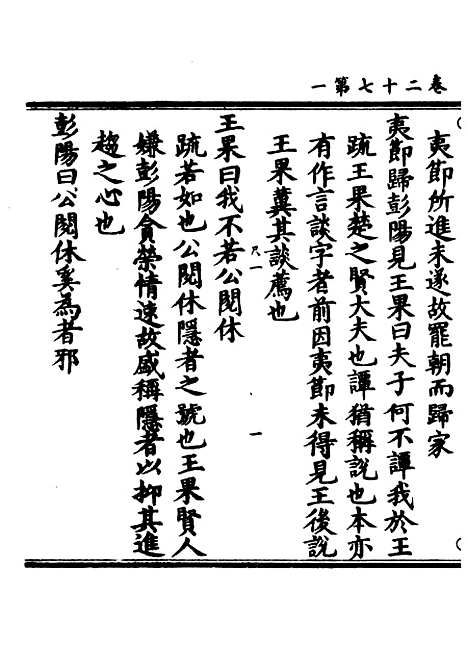 卷二十七第一
夷節所進未遂故罷朝而歸家
夷節歸彭陽見王果曰夫子何不譚我於王
疏王果楚之賢大夫也譚猶稱說也本亦
有作言談字者前因夷節未得見王後說
王果冀其談薦也
尺一
一
王果曰我不若公閱休
疏若如也公閱休隱者之號也王果賢人
嫌彭陽貪榮情速故盛稱隱者以抑其進
趨之心也
彭陽曰公閱休奚為者邪